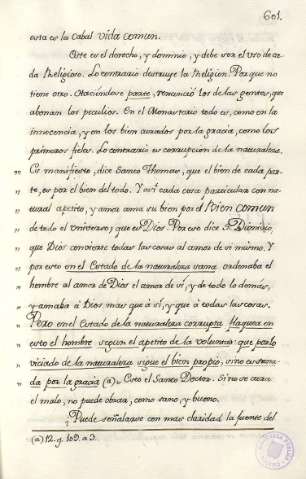 601.
esta es la Cabal vida comun.
Este es el derecho, y dominio, y debe ser el uso de ca-
da Religioso. Lo contrario destruye la Religion. Porque no
tiene otro. Haciendose parte, renunció los de las gentes, que
abonan los peculios. En el Monasterio todo es, como en la
innocencia, y en los bien ayudados por la gracia, como los
primeros fieles. Lo contrario es corrupcion de la naturaleza.
Es manifiesto, dice Santo Thomas, que el bien de cada par-
te, es por el bien del todo. Y asi cada cosa particular con na-
tural apetito, y amor ama su bien por el Bien comun
de todo el Universo; que es Dios. Por eso dice S. Dionisio,
que Dios convierte todas las cosas al amor de si mismo. Y
por esto en el Estado de la naturaleza sana ordenaba el
hombre al amor de Dios el amor de sí, y de todo lo demas,
y amaba à Dios mas que à sí, y que à todas las cosas.
Pero en el Estado de la naturaleza corrupta flaquea en
esto el hombre segun el apetito de la voluntad: que por lo
viciado de la naturaleza sigue el bien propio, si no es sana-
da por la gracia (a). Esto el Santo Doctor. Si no se cura
el malo, no puede obrar, como sano, y bueno.
¿Puede señalarse con mas claridad la fuente del
(a) 12. q. 109. a 3.